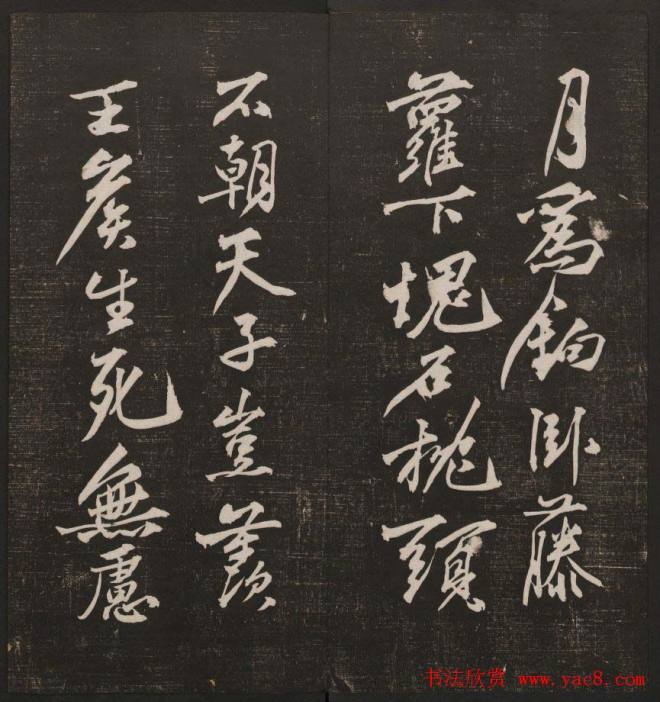 月為鉤卧藤
蘿下塊石枕頭
不朝天子豈羨
王侯生死無慮
书法欣赏 www.yac8.com